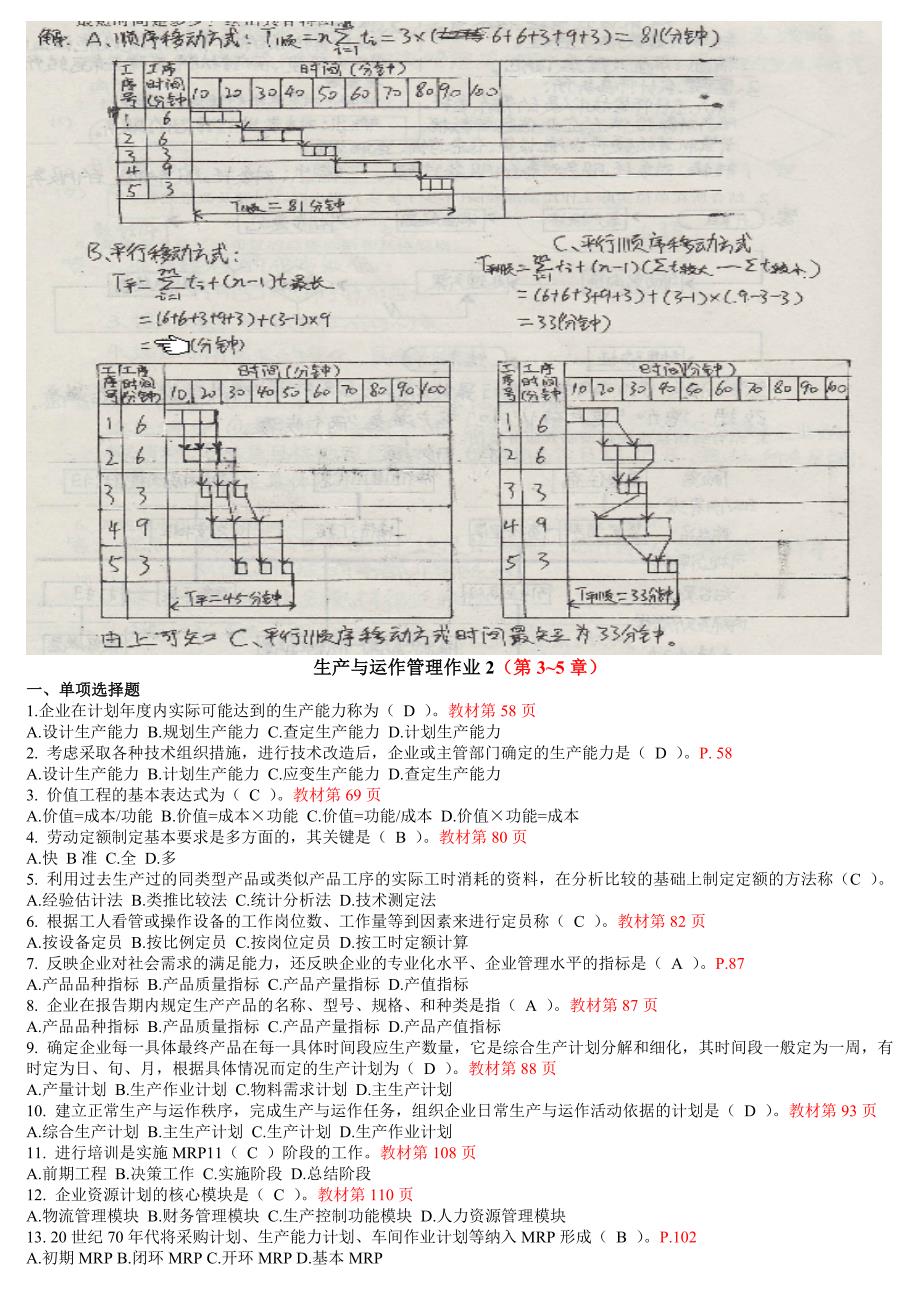 解: A、顺序移动方式: T顺=n∑ti=3×(6+6+3+9+3)=81(分钟)
工序号 工序时间(分钟) 时间(分钟)
10 20 30 40 50 60 70 80 90 100
1 6
2 6
3 3
4 9
5 3
T顺=81分钟
B、平行移动方式:
T平=∑ti+(n-1)t最长
=(6+6+3+9+3)+(3-1)×9
= (分钟)
C、平行顺序移动方式
T平顺=∑ti+(n-1)(∑t较大-∑t较小)
=(6+6+3+9+3)+(3-1)×(9-3-3)
=33(分钟)
工序号 工序时间(分钟) 时间(分钟)
10 20 30 40 50 60 70 80 90 100
1 6
2 6
3 3
4 9
5 3
T平=45分钟
工序号 工序时间(分钟) 时间(分钟)
10 20 30 40 50 60 70 80 90 100
1 6
2 6
3 3
4 9
5 3
T平顺=33分钟
由上可知 C、平行顺序移动方式时间最短为33分钟。
生产与运作管理作业2（第3~5章）
一、单项选择题
1.企业在计划年度内实际可能达到的生产能力称为（ D ）。教材第58页
A.设计生产能力 B.规划生产能力 C.查定生产能力 D.计划生产能力
2. 考虑采取各种技术组织措施，进行技术改造后，企业或主管部门确定的生产能力是（ D ）。P. 58
A.设计生产能力 B.计划生产能力 C.应变生产能力 D.查定生产能力
3. 价值工程的基本表达式为（ C ）。教材第69页
A.价值=成本/功能 B.价值=成本×功能 C.价值=功能/成本 D.价值×功能=成本
4. 劳动定额制定基本要求是多方面的，其关键是（ B ）。教材第80页
A.快 B准 C.全 D.多
5. 利用过去生产过的同类型产品或类似产品工序的实际工时消耗的资料，在分析比较的基础上制定定额的方法称（C ）。
A.经验估计法 B.类推比较法 C.统计分析法 D.技术测定法
6. 根据工人看管或操作设备的工作岗位数、工作量等到因素来进行定员称（ C ）。教材第82页
A.按设备定员 B.按比例定员 C.按岗位定员 D.按工时定额计算
7. 反映企业对社会需求的满足能力，还反映企业的专业化水平、企业管理水平的指标是（ A ）。P.87
A.产品品种指标 B.产品质量指标 C.产品产量指标 D.产值指标
8. 企业在报告期内规定生产产品的名称、型号、规格、和种类是指（ A ）。教材第87页
A.产品品种指标 B.产品质量指标 C.产品产量指标 D.产品产值指标
9. 确定企业每一具体最终产品在每一具体时间段应生产数量，它是综合生产计划分解和细化，其时间段一般定为一周，有
时定为日、旬、月，根据具体情况而定的生产计划为（ D ）。教材第88页
A.产量计划 B.生产作业计划 C.物料需求计划 D.主生产计划
10. 建立正常生产与运作秩序，完成生产与运作任务，组织企业日常生产与运作活动依据的计划是（ D ）。教材第93页
A.综合生产计划 B.主生产计划 C.生产计划 D.生产作业计划
11. 进行培训是实施MRP11（ C ）阶段的工作。教材第108页
A.前期工程 B.决策工作 C.实施阶段 D.总结阶段
12. 企业资源计划的核心模块是（ C ）。教材第110页
A.物流管理模块 B.财务管理模块 C.生产控制功能模块 D.人力资源管理模块
13. 20世纪70年代将采购计划、生产能力计划、车间作业计划等纳入MRP形成（ B ）。P.102
A.初期MRP B.闭环MRP C.开环MRP D.基本MRP